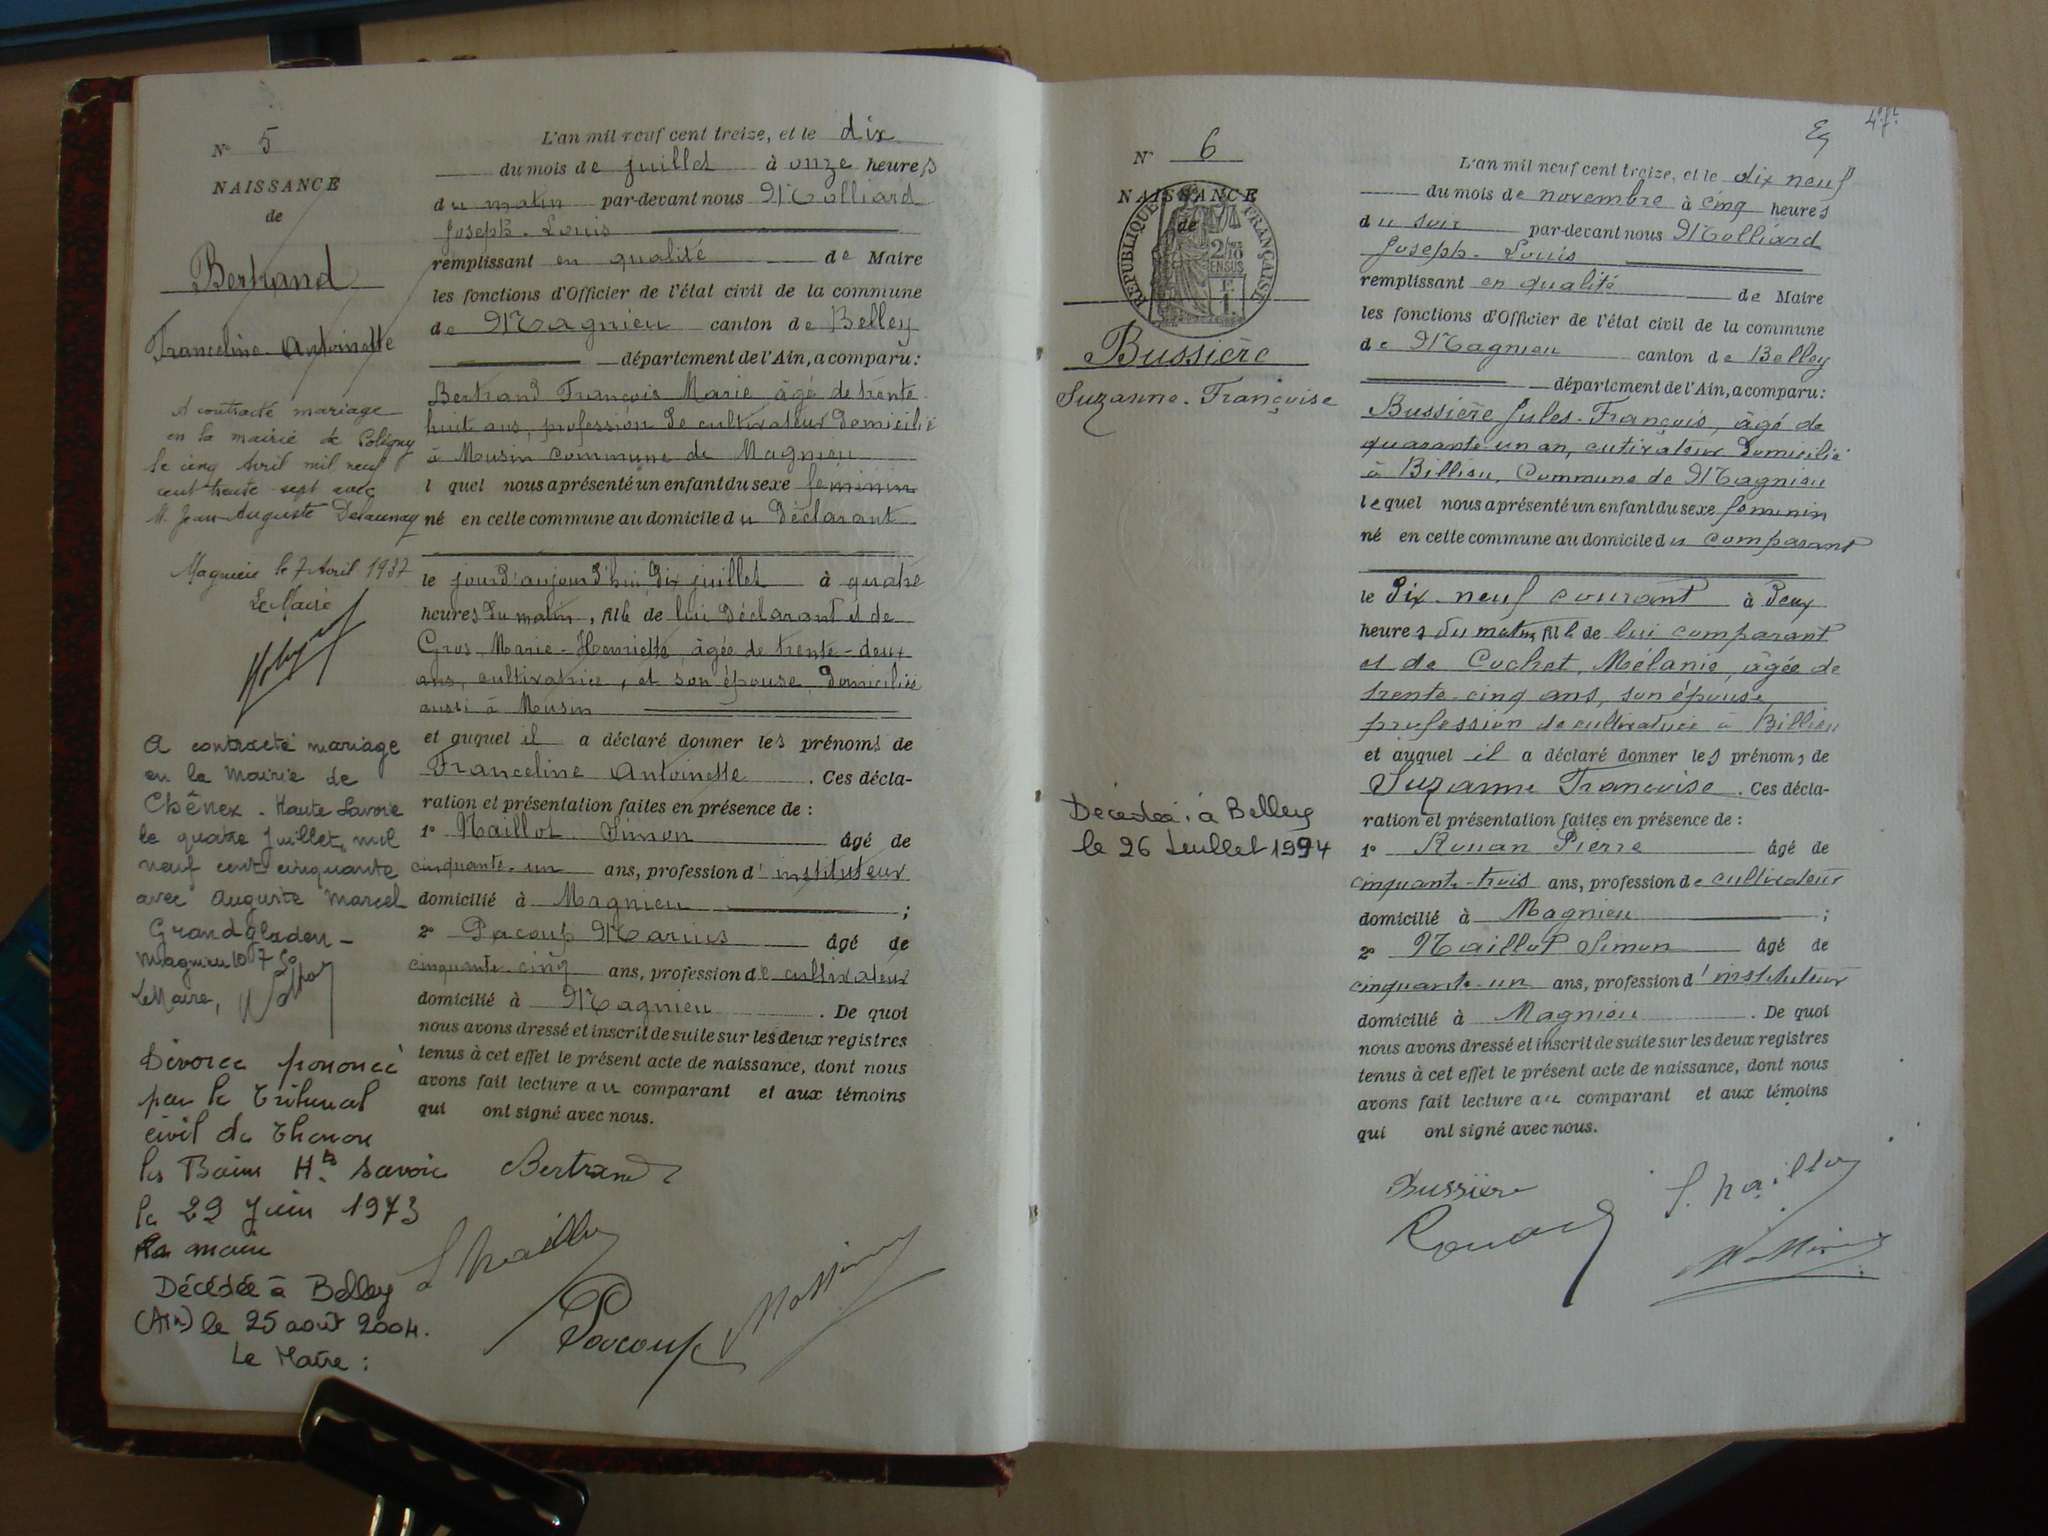 N° 5
NAISSANCE
de
Bertrand
Franceline Antoinette
A contracté mariage
en la mairie de Poligny
le cinq Avril mil neuf
cent trente sept avec
M. Jean Auguste Delaunay
Magnieu le 7 Avril 1937
Le Maire
A contracté mariage
en la Mairie de
Chênex - Haute Savoie
le quatre Juillet, mil
neuf cent cinquante
avec Auguste Marcel
Grandgladen -
Magnieu 10 7 50
Le Maire,
Divorce prononcé
par le Tribunal
civil de Thonon
les Bains Hte Savoie
le 29 Juin 1973
Décédée à Belley
(Ain) le 25 août 2004.
Le Maire :
L'an mil neuf cent treize, et le dix
du mois de juillet à onze heures
du matin par-devant nous Molliard
Joseph-Louis
remplissant en qualité de Maire
les fonctions d'Officier de l'état civil de la commune
de Magnieu canton de Belley
département de l'Ain, a comparu :
Bertrand François Marie âgé de trente
huit ans, profession de cultivateur domicilié
à Musin commune de Magnieu
l quel nous a présenté un enfant du sexe féminin
né en cette commune au domicile du Déclarant
le jourd'aujourd'hui dix juillet à quatre
heures du matin, fille de lui Déclarant et de
Gros Marie-Henriette, âgée de trente-deux
ans, cultivatrice, et son épouse domiciliée
aussi à Musin
et auquel il a déclaré donner les prénoms de
Franceline Antoinette. Ces décla-
ration et présentation faites en présence de :
1° Maillot Simon âgé de
cinquante-un ans, profession d'instituteur
domicilié à Magnieu ;
2° Pacoup Marius âgé de
cinquante-cinq ans, profession de cultivateur
domicilié à Magnieu. De quoi
nous avons dressé et inscrit de suite sur les deux registres
tenus à cet effet le présent acte de naissance, dont nous
avons fait lecture au comparant et aux témoins
qui ont signé avec nous.
Bertrand
S. Maillot
Pacoup
47
N° 6
NAISSANCE
de
RÉPUBLIQUE FRANÇAISE
2/10
EN SUS
Bussière
Suzanne-Françoise
Décédée à Belley
le 26 Juillet 1994
L'an mil neuf cent treize, et le dix neuf
du mois de novembre à cinq heures
du soir par-devant nous Molliard
Joseph-Louis
remplissant en qualité de Maire
les fonctions d'Officier de l'état civil de la commune
de Magnieu canton de Belley
département de l'Ain, a comparu :
Bussière Jules-François, âgé de
quarante-un an, cutivateur domicilié
à Billieu, Commune de Magnieu
lequel nous a présenté un enfant du sexe féminin
né en cette commune au domicile du comparant
le Dix neuf courant à Deux
heures du matin, fille de lui comparant
et de Cochet, Mélanie, âgée de
trente-cinq ans, son épouse
profession de cultivatrice à Billieu
et auquel il a déclaré donner les prénoms de
Suzanne Françoise. Ces décla-
ration et présentation faites en présence de :
1° Rouan Pierre âgé de
cinquante-trois ans, profession de cultivateur
domicilié à Magnieu ;
2° Maillot Simon âgé de
cinquante-un ans, profession d'instituteur
domicilié à Magnieu. De quoi
nous avons dressé et inscrit de suite sur les deux registres
tenus à cet effet le présent acte de naissance, dont nous
avons fait lecture au comparant et aux témoins
qui ont signé avec nous.
Bussière
S. Maillot
Rouan